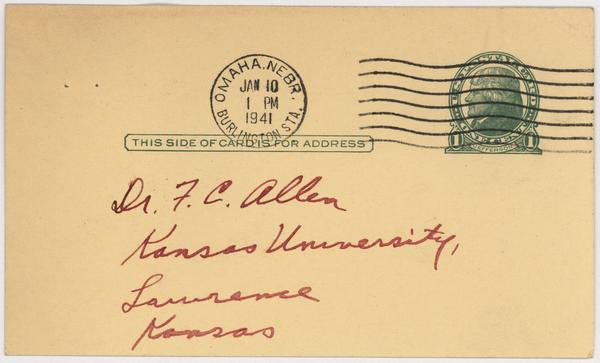 OMAHA, NEBR.
JAN 10
1 PM
1941
BURLINGTON STA.
THIS SIDE OF CARD IS FOR ADDRESS
1 JEFFERSON 1
Dr. F. C. Allen
Kansas University,
Lawrence
Kansas